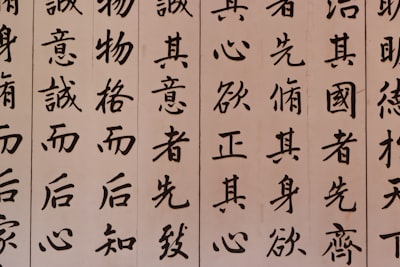 明明德於天下
治其國者先齊
者先脩其身欲
其心欲正其心
誠其意者先致
物物格而后知
誠意誠而后心
身脩而后家